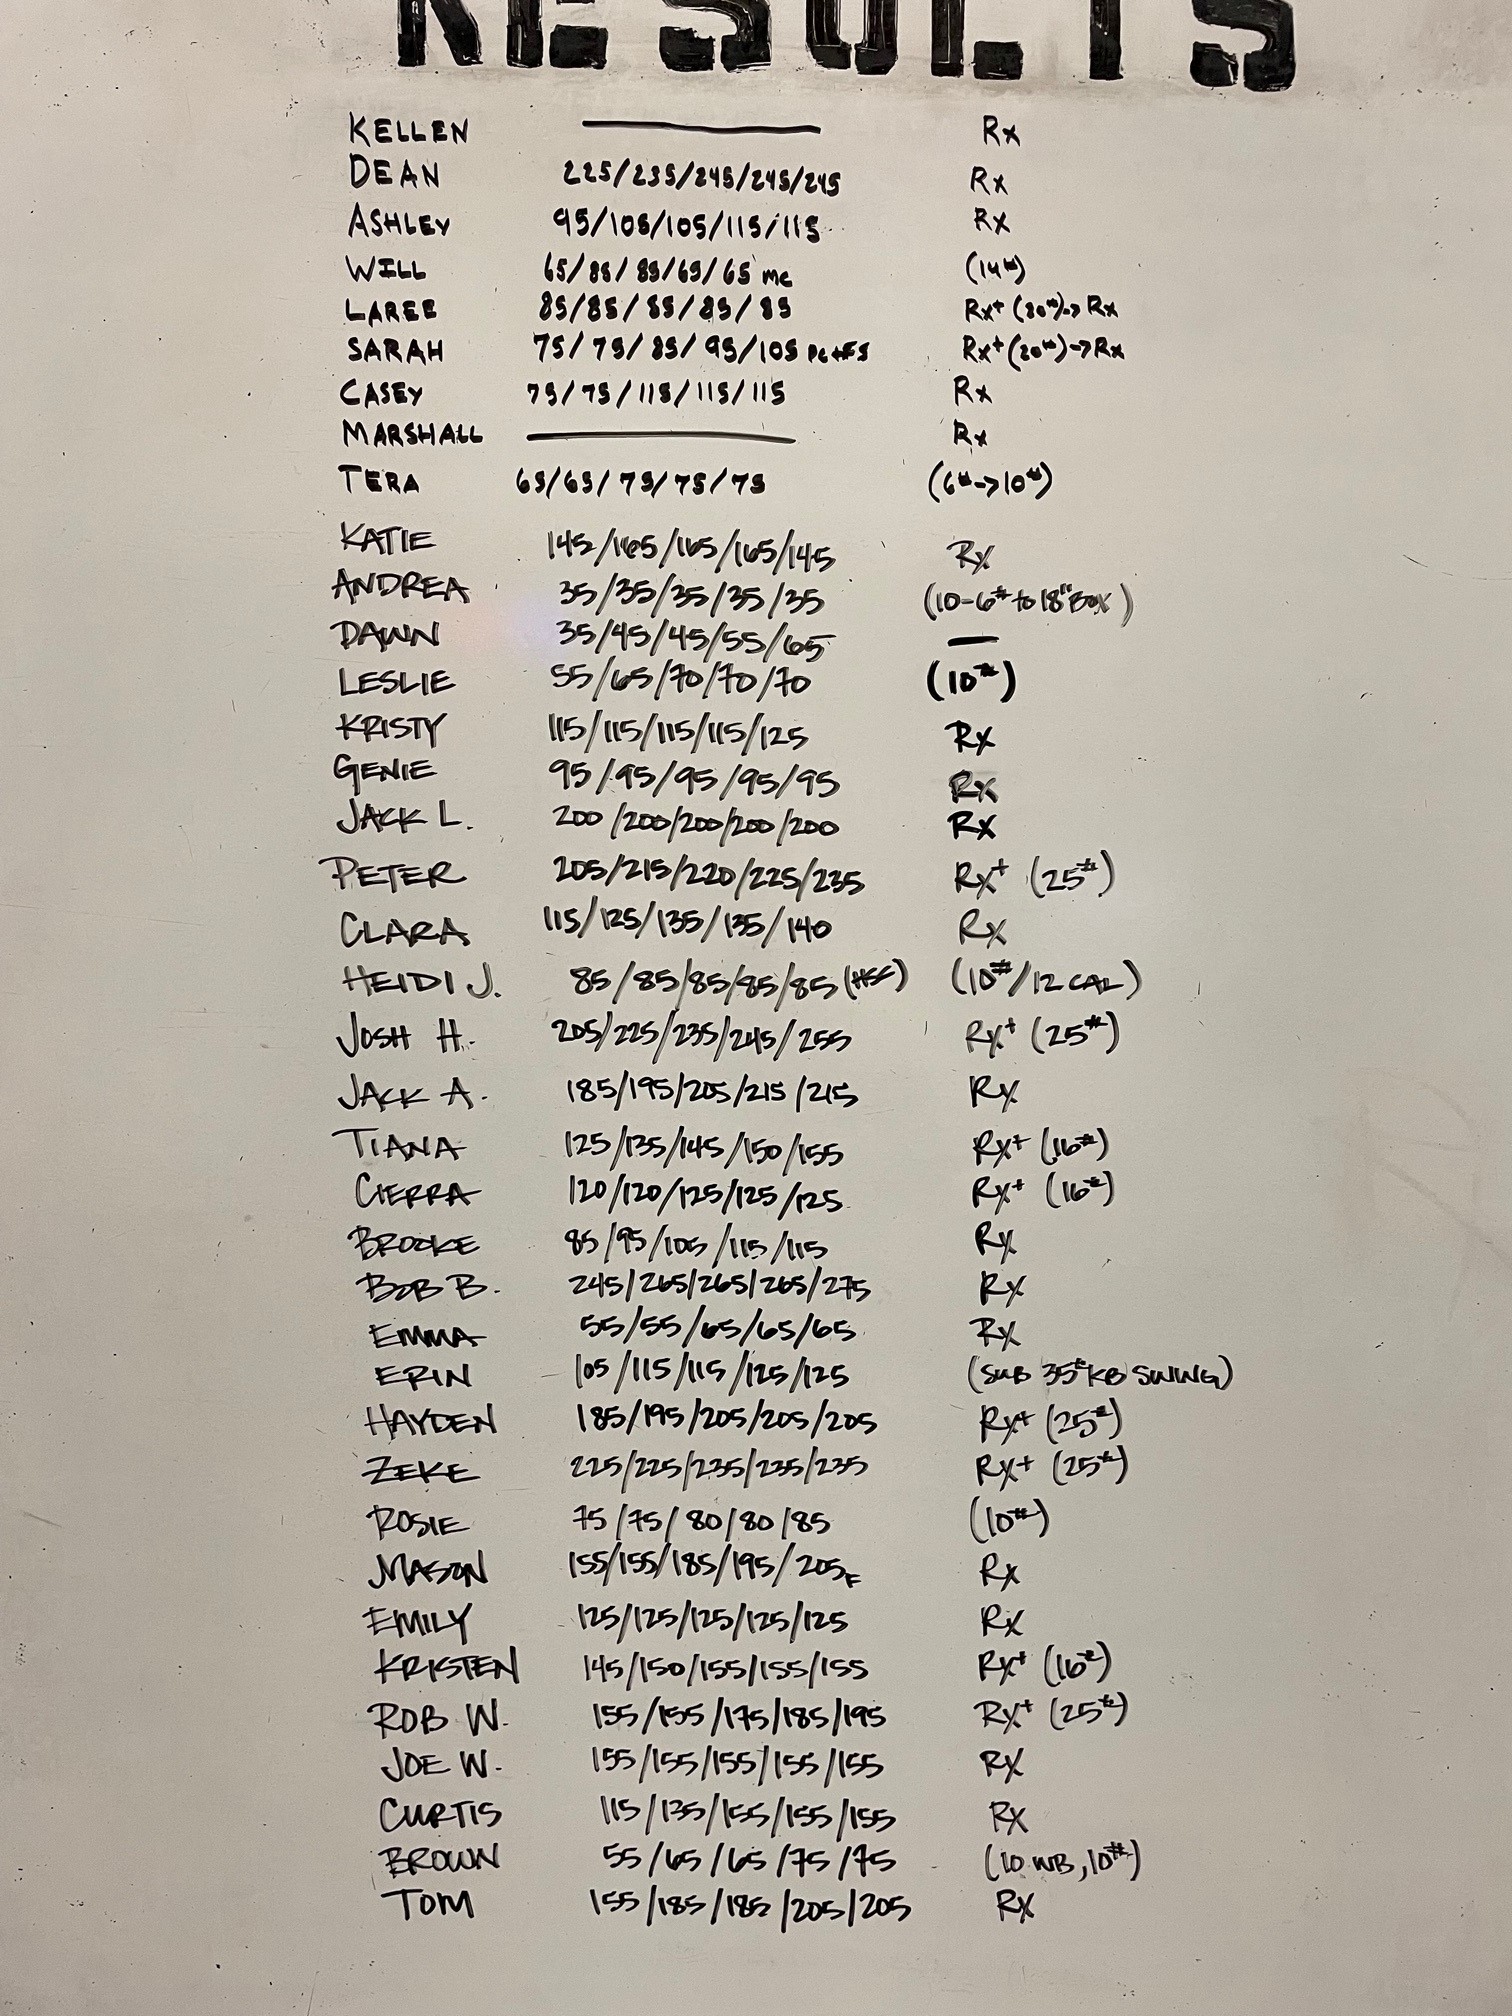 RESULTS
KELLEN Rx
DEAN 225/235/245/245/245 Rx
ASHLEY 95/105/105/115/115 Rx
WILL 65/85/85/65/65 MC (14#)
LAREE 85/85/85/85/85 Rx+ (20#)->Rx
SARAH 75/75/85/95/105 PC+FS Rx+(20#)->Rx
CASEY 75/75/115/115/115 Rx
MARSHALL Rx
TERA 65/65/75/75/75 (6#->10#)
KATIE 145/165/165/165/145 Rx
ANDREA 35/35/35/35/35 (10-6# to 18" BOX)
DAWN 35/45/45/55/65 —
LESLIE 55/65/70/70/70 (10#)
KRISTY 115/115/115/115/125 Rx
GENIE 95/95/95/95/95 Rx
JACK L. 200/200/200/200/200 Rx
PETER 205/215/220/225/235 Rx+ (25#)
CLARA 115/125/135/135/140 Rx
HEIDI J. 85/85/85/85/85 (10#/12 CAL)
JOSH H. 205/225/235/245/255 Rx+ (25#)
JACK A. 185/195/205/215/215 Rx
TIANA 125/135/145/150/155 Rx+ (16#)
CIERRA 120/120/125/125/125 Rx+ (16#)
BROOKE 85/95/105/115/115 Rx
BOB B. 245/265/265/265/275 Rx
EMMA 55/55/65/65/65 Rx
ERIN 105/115/115/125/125 (SUB 35# KB SWING)
HAYDEN 185/195/205/205/205 Rx+ (25#)
ZEKE 225/225/235/235/235 Rx+ (25#)
ROSIE 75/75/80/80/85 (10#)
MASON 155/155/185/195/205F Rx
EMILY 125/125/125/125/125 Rx
KRISTEN 145/150/155/155/155 Rx+ (16#)
ROB W. 155/155/175/185/195 Rx+ (25#)
JOE W. 155/155/155/155/155 Rx
CURTIS 115/135/155/155/155 Rx
BROWN 55/65/65/75/75 (10 WB, 10#)
TOM 155/185/185/205/205 Rx